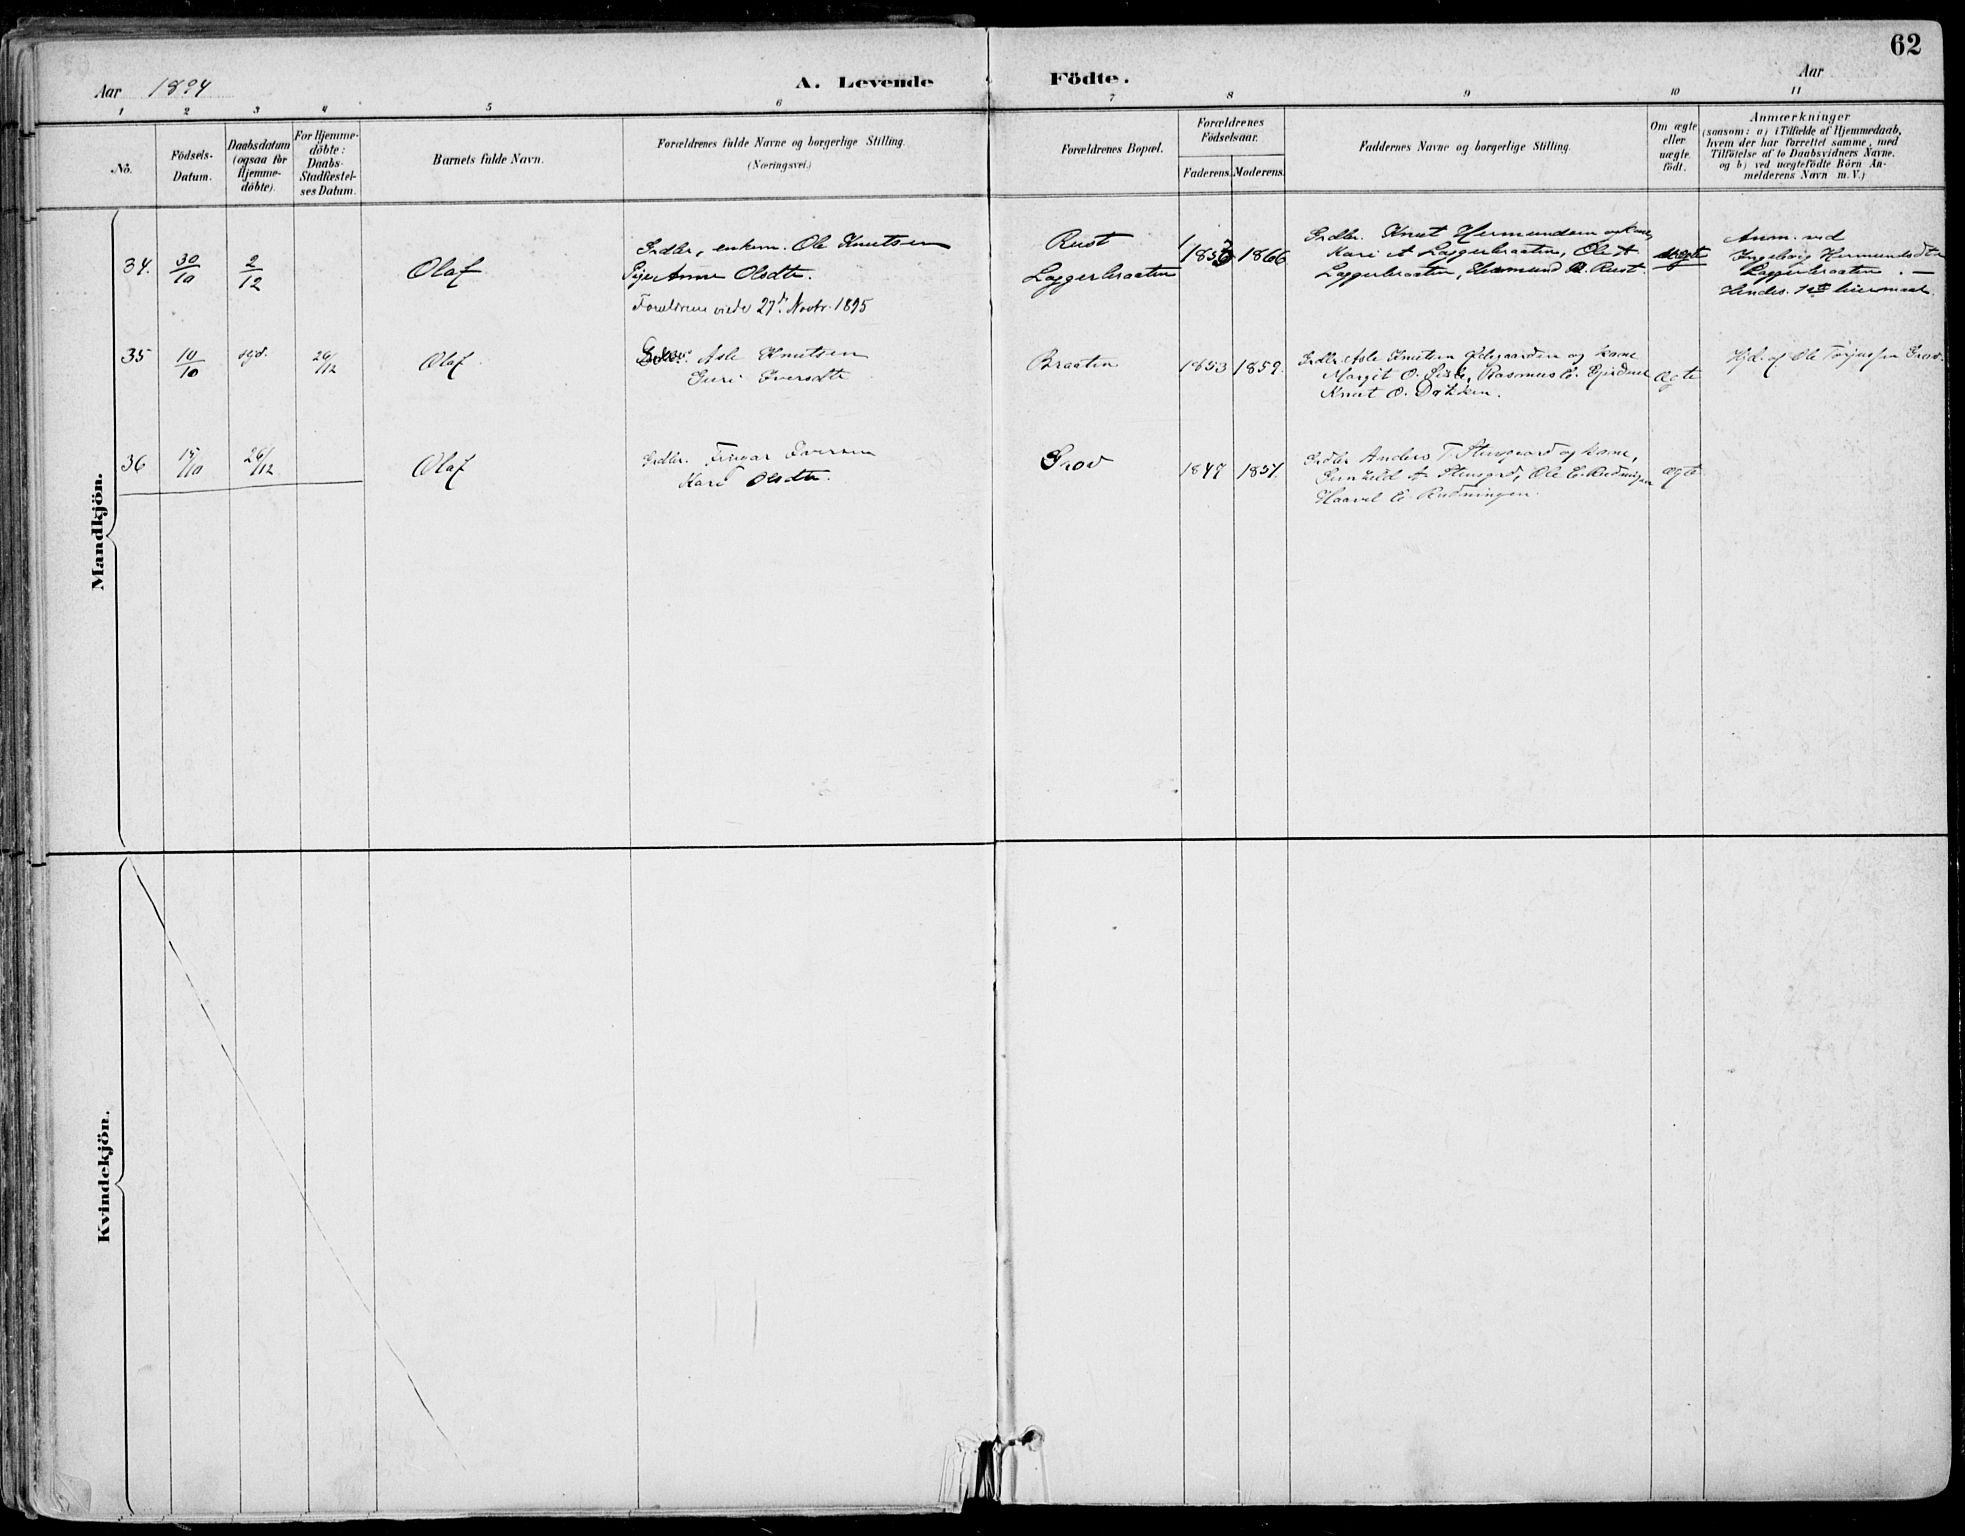 62
Aar 1894
A. Levende Födte.
Aar
1 2 3 4 5 6 7 8 9 10 11
No.
Födsels-Datum.
Daabsdatum (ogsaa for Hjemme-döbte).
For Hjemme-döbte: Daabs-Stadfestel-ses Datum.
Barnets fulde Navn.
Forældrenes fulde Navne og borgerlige Stilling. (Næringsvei.)
Forældrenes Bopæl.
Forældrenes Födselsaar.
Faderens. Moderens.
Faddernes Navne og borgerlige Stilling.
Om ægte eller uægte födt.
Anmærkninger
(saasom: a) i Tilfælde af Hjemmedaab,
hvem der har forrettet samme, med
Tilföielse af to Daabsvidners Navne.
og b) ved uægtefödte Börn An-
melderens Navn m. V.)
Mandkjön.
34. 30/10 2/12 Olaf
Grdbr., enkem. Ole Knutsen
Pige Anne Olsdtr.
Foreldrene viede 27de Novbr. 1895
Rust
Laggerbraaten
1866
Grdbr. Knut Hermundsen og kone,
Kari A Laggerbraaten, Ole A
Laggerbraaten, Hermund Rust
uægte
Anm. ved
Ingeborg Hermundsdtr
Laggerbraaten. —
Hendes 1ste leiermaal.
35 10/10 26/12 Olaf.
Asle Knutsen
Guri Iversdtr
Braaten
1853 1859.
Grdbr. Asle Knutsen Ødegaarden og kone
Margit O. Rasmus E.
Knut O. Dokken.
ægte
Hjd. af Ole Torjussen Grov.
36 15/10 26/12 Olaf
Grdbr. Iversen
Kari Olsdtr.
Grov
1847 1857.
Grdbr Anders T. Stensgaard og kone,
Gunhild A Stensgard, Ole E. Rudningen
Haavel E. Rudningen.
ægte
Kvindekjön.